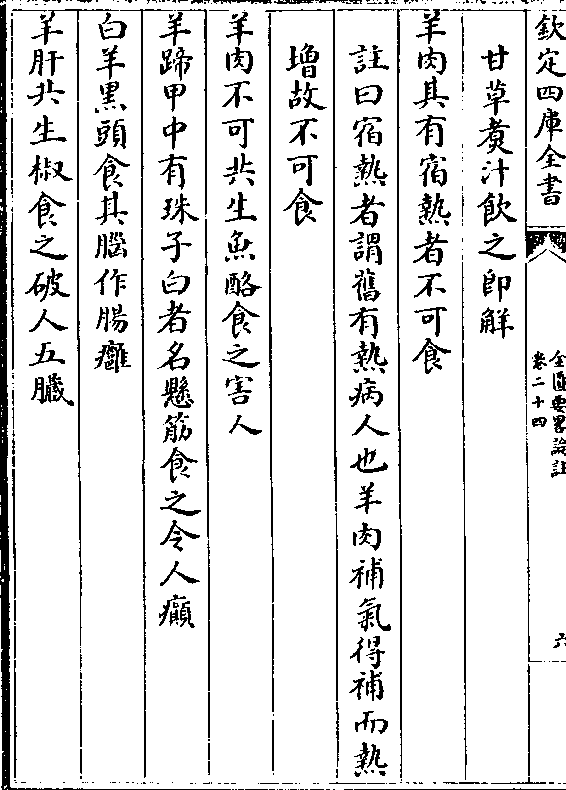 欽定四庫全書
金匱要畧論註
卷二十四
六
甘草煑汁飲之即解
羊肉其有宿熱者不可食
註曰宿熱者謂舊有熱病人也羊肉補氣得補而熱
増故不可食
羊肉不可共生魚酪食之害人
羊蹄甲中有珠子白者名懸筋食之令人癲
白羊黒頭食其腦作腸癰
羊肝共生椒食之破人五臟